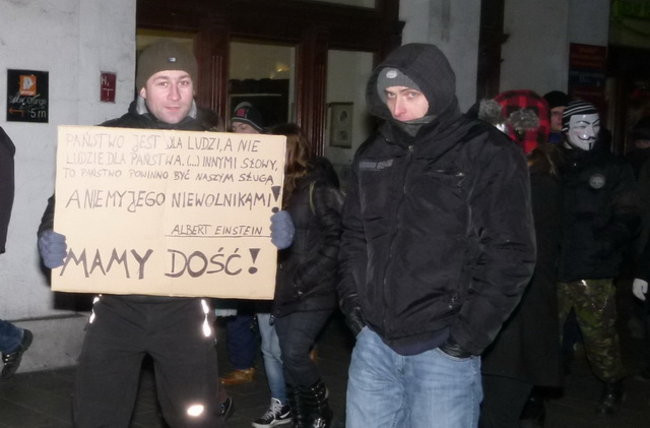 PAŃSTWO JEST DLA LUDZI, A NIE
LUDZIE DLA PAŃSTWA. (...) INNYMI SŁOWY,
TO PAŃSTWO POWINNO BYĆ NASZYM SŁUGĄ
A NIE MY JEGO NIEWOLNIKAMI!
ALBERT EINSTEIN
MAMY DOŚĆ!
5m